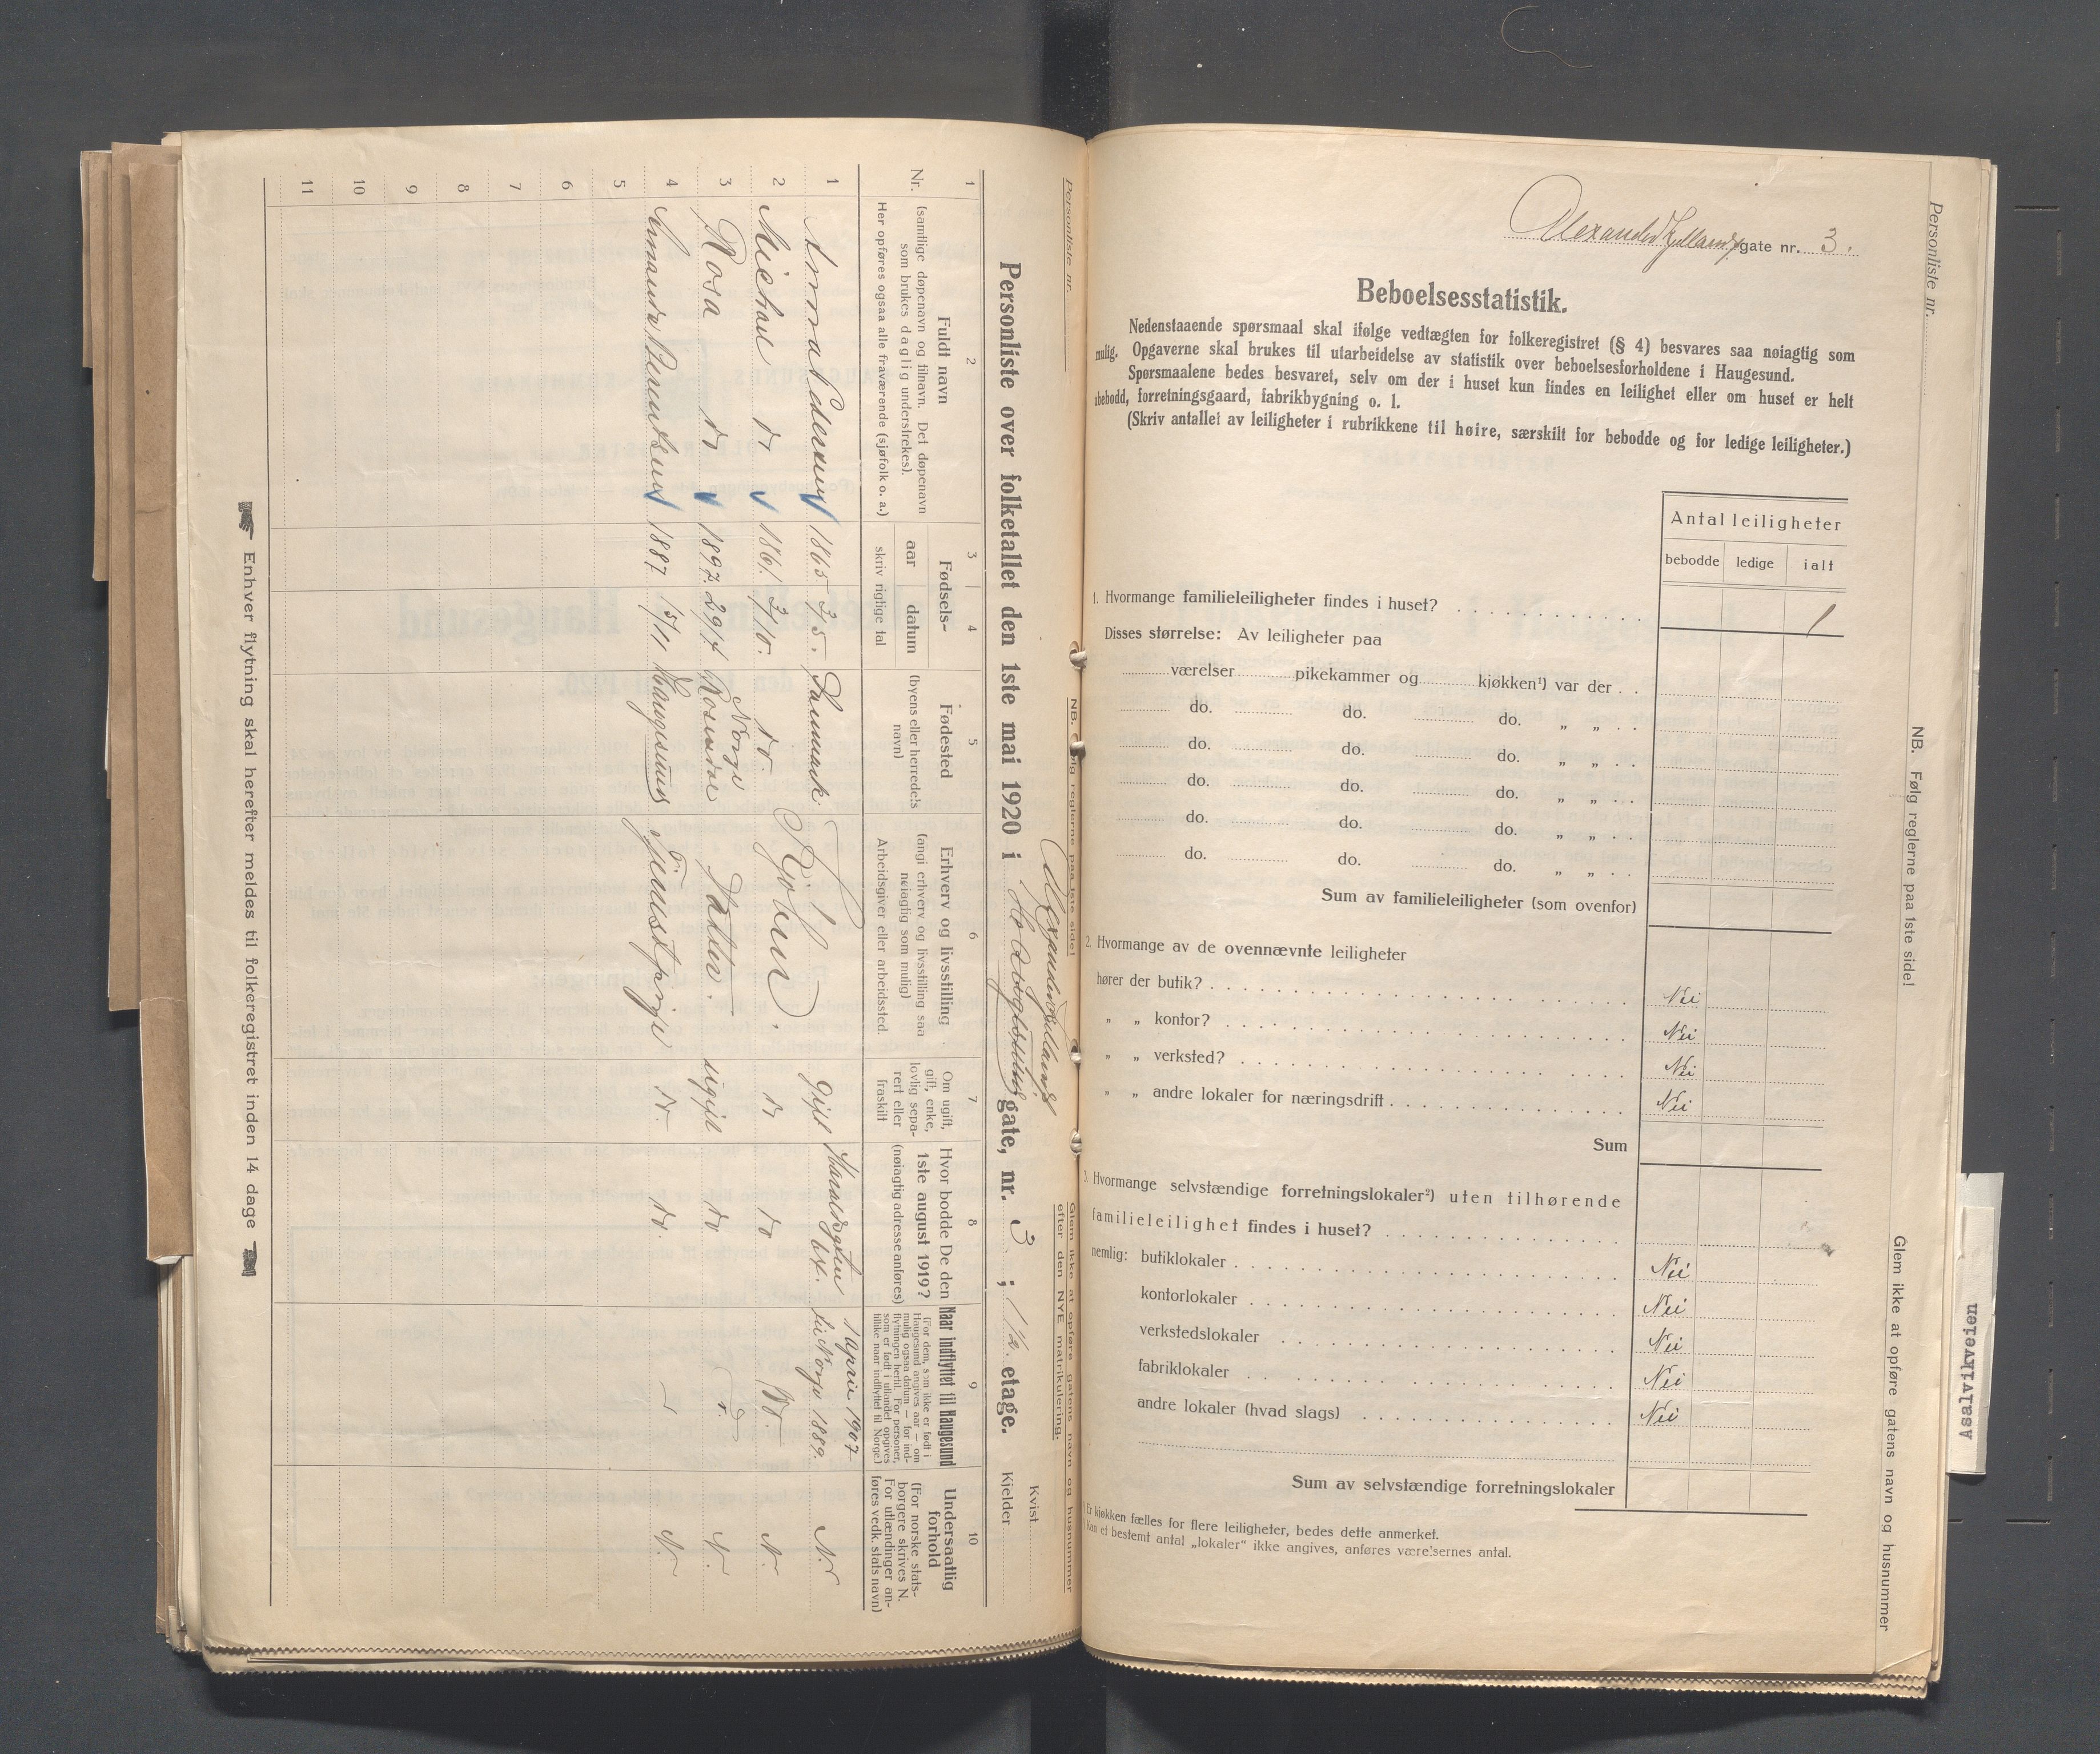 Personliste nr.
NB. Følg reglerne paa 1ste side!
Glem ikke at opføre gatens navn og husnummer
efter den NYE matrikulering.
Personliste over folketallet den 1ste mai 1920 i Haugesund gate, nr. 3 ; 1 1/2. etage.
Kvist
Kjelder
1 2 3 4 5 6 7 8 9 10
Nr.
Fuldt navn
(samtlige døpenavn og tilnavn. Det døpenavn
som brukes daglig understrekes).
Her opføres ogsaa alle fraværende (sjøfolk o. a.)
Fødsels-
aar datum
skriv rigtige tal
Fødested
(byens eller herredets
navn)
Erhverv og livsstilling
(angi erhverv og livsstilling saa
nøiagtig som mulig)
Arbeidsgiver eller arbeidssted.
Om ugift,
gift, enke,
lovlig sepa-
rert eller
fraskilt
Hvor bodde De den
1ste august 1919?
(nøiagtig adresse anføres)
Naar indflyttet til Haugesund
(For dem, som ikke er født i
Haugesund angives aar — om
mulig ogsaa datum — for ind-
flytningen hertil. For personer,
som er født i utlandet opgives
tillike naar indflyttet til Norge)
Undersaatlig
forhold
(For norske stats-
borgere skrives N.
For utlændinger an-
føres vedk. stats navn)
1 Anna Pedersen 1865 3/5. Danmark Gift Haraldsgaten 1 april 1907 til Norge 1889. N.
2 do 1861. 3/10. do. do do do. N.
3 Rosa do 1897. 29/7 Norge Rosendal Datter. ugift do N.
4 Amanda Berentsen 1887 15/11 Haugesund do. do. N.
5
6
7
8
9
10
11
Enhver flytning skal herefter meldes til folkeregistret inden 14 dage
Personliste nr.
NB. Følg reglerne paa 1ste side!
Glem ikke at opføre gatens navn og husnummer
Alexander Kjellands gate nr. 3.
Beboelsesstatistik.
Nedenstaaende spørsmaal skal ifølge vedtægten for folkeregistret (§ 4) besvares saa nøiagtig som
mulig. Opgaverne skal brukes til utarbeidelse av statistik over beboelsesforholdene i Haugesund.
Spørsmaalene bedes besvaret, selv om der i huset kun findes en leilighet eller om huset er helt
ubebodd, forretningsgaard, fabrikbygning o. l.
(Skriv antallet av leiligheter i rubrikkene til høire, særskilt for bebodde og for ledige leiligheter.)
Antal leiligheter
bebodde ledige ialt
1. Hvormange familieleiligheter findes i huset? 1
Disses størrelse: Av leiligheter paa
værelser pikekammer og kjøkken¹) var der
do. do. do. „ „
do. do. do. „ „
do. do. do. „ „
do. do. do. „ „
do. do. do. „ „
Sum av familieleiligheter (som ovenfor)
2. Hvormange av de ovennævnte leiligheter
hører der butik? Nei
„ „ kontor? Nei
„ „ verksted? Nei
„ „ andre lokaler for næringsdrift Nei
Sum
3. Hvormange selvstændige forretningslokaler²) uten tilhørende
familieleilighet findes i huset?
nemlig: butiklokaler Nei
kontorlokaler Nei
verkstedslokaler Nei
fabriklokaler Nei
andre lokaler (hvad slags) Nei
Sum av selvstændige forretningslokaler
Er kjøkken fælles for flere leiligheter, bedes dette anmerket.
Kan et bestemt antal „lokaler" ikke angives, anføres værelsernes antal.
Assalvikveien